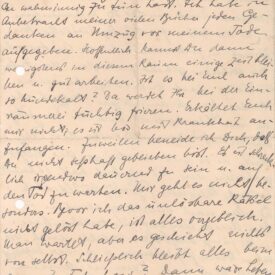 zu tun hast. Ich habe in
Anbetracht meiner vielen Bücher jeden Ge-
danken an Umzug vor meinem Tode
aufgegeben. Hoffentlich kannst Du dann
wenigstens in diesem Raum einige Zeit blei-
ben u. gut arbeiten. Ist es bei Euch auch
so hundekalt? Da werdet Ihr bei der Ein-
tüchtig frieren. Erkältet Euch
nur nicht, es ist bös mit Krankheit an-
zufangen. Zuweilen beneide ich Dich, daß
Du nicht seßhaft geblieben bist. Es ist
irgendwo dauernd zu sein u. auf
den Tod zu warten. Mir geht es nicht be-
sonders. Bevor ich das unlösbare Rätsel
nicht gelöst habe, ist alles vergeblich.
Man wartet, aber es geschieht nichts
von selbst. Schließlich bleibt alles beim
Dann wäre